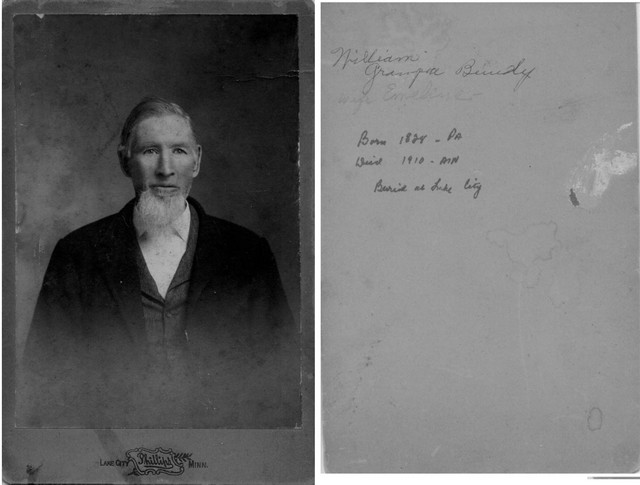 LAKE CITY Phillips MINN.
William
Grampa Bundy
wife Emeline
Born 1828 - PA
Died 1910 - MN
Buried at Lake City